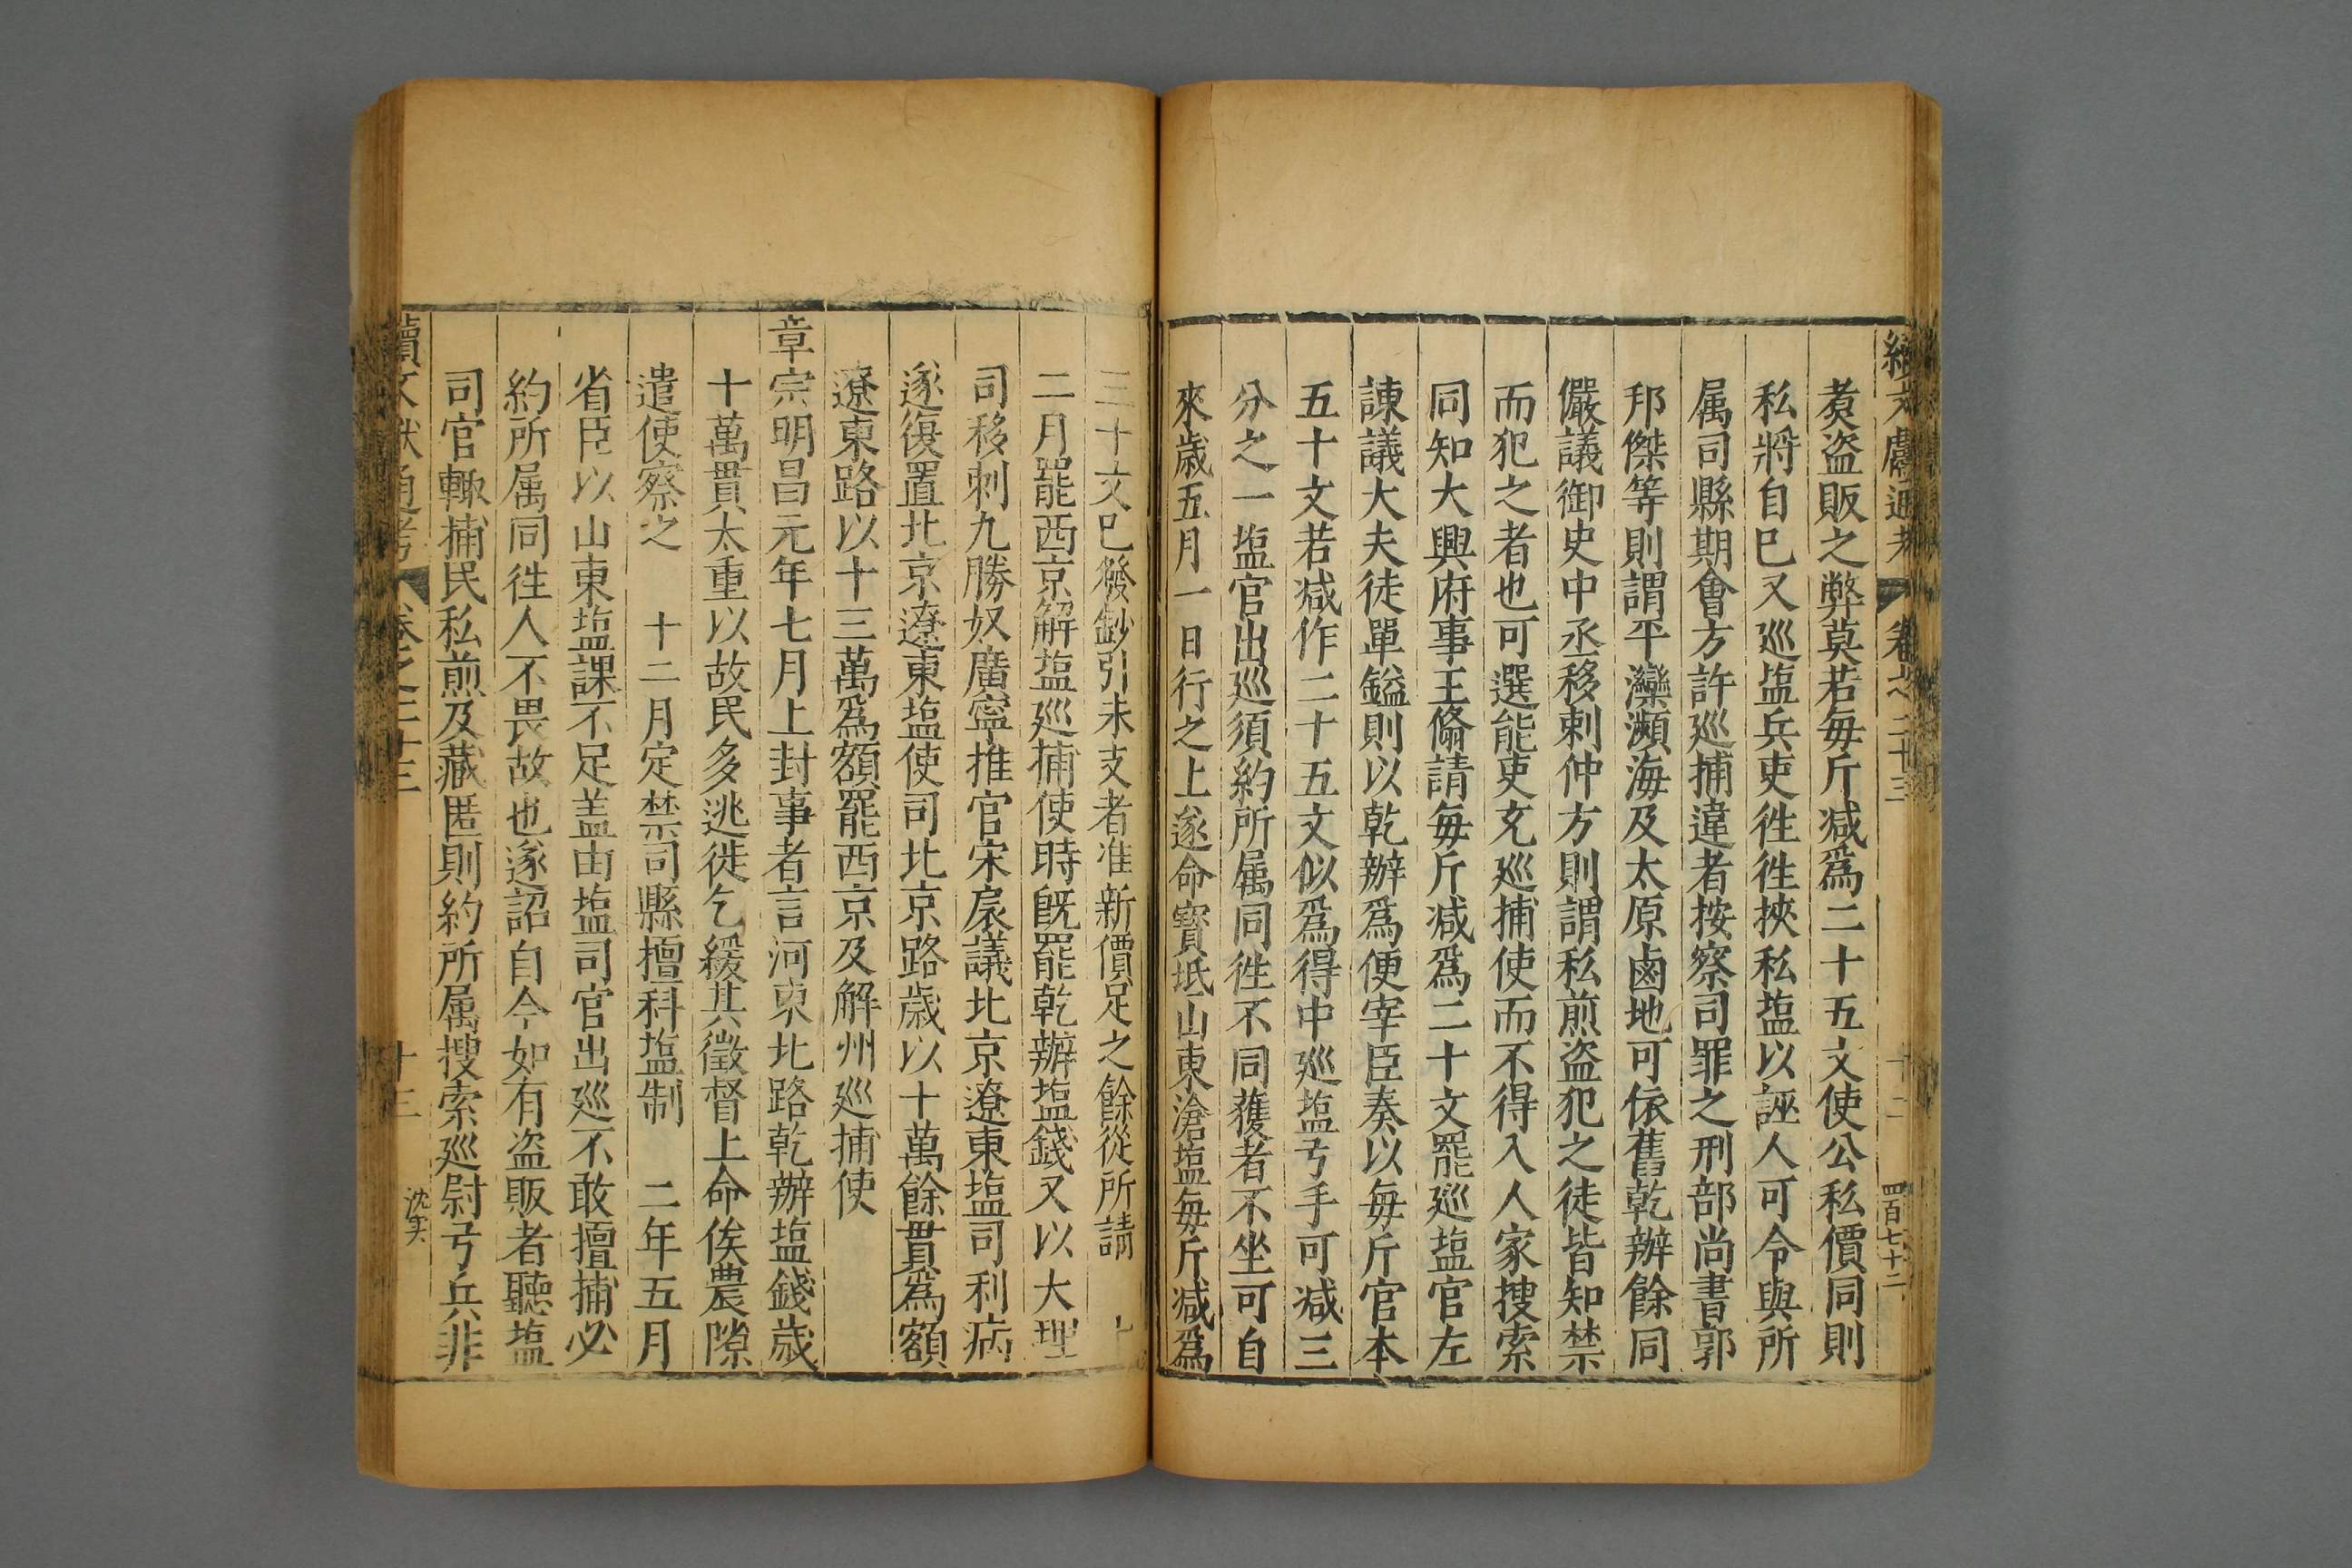 續文獻通考 卷之二十三 十二 四百七十二
煑盗販之弊莫若每斤减爲二十五文使公私價同則
私將自巳又巡塩兵吏徃徃挾私塩以誣人可令與所
属司縣期會方許巡捕違者按察司罪之刑部尚書郭
邦傑等則謂平灤瀕海及太原鹵地可依舊乾辦餘同
儼議御史中丞移剌仲方則謂私煎盗犯之徒皆知禁
而犯之者也可選能吏充巡捕使而不得入人家搜索
同知大興府事王脩請每斤减爲二十文罷巡塩官左
諫議大夫徒單鎰則以乾辦爲便宰臣奏以每斤官本
五十文若减作二十五文似爲得中巡塩弓手可减三
分之一塩官出巡須約所属同徃不同獲者不坐可自
來歲五月一日行之上遂命寳坻山東滄塩每斤减爲
三十文巳發鈔引未支者准新價足之餘從所請 十
二月罷西京解塩巡捕使時旣罷乾辦塩錢又以大理
司移剌九勝奴廣寧推官宋扆議北京遼東塩司利病
遂復置北京遼東塩使司北京路歲以十萬餘貫爲額
遼東路以十三萬爲額罷西京及解州巡捕使
章宗明昌元年七月上封事者言河東北路乾辦塩錢歲
十萬貫太重以故民多逃徙乞緩其徵督上命俟農隙
遣使察之 十二月定禁司縣擅科塩制 二年五月
省臣以山東塩課不足盖由塩司官出巡不敢擅捕必
約所属同徃人不畏故也遂詔自今如有盗販者聽塩
司官輙捕民私煎及藏匿則約所属搜索巡尉弓兵非
續文獻通考 卷之二十三 十三 沈实